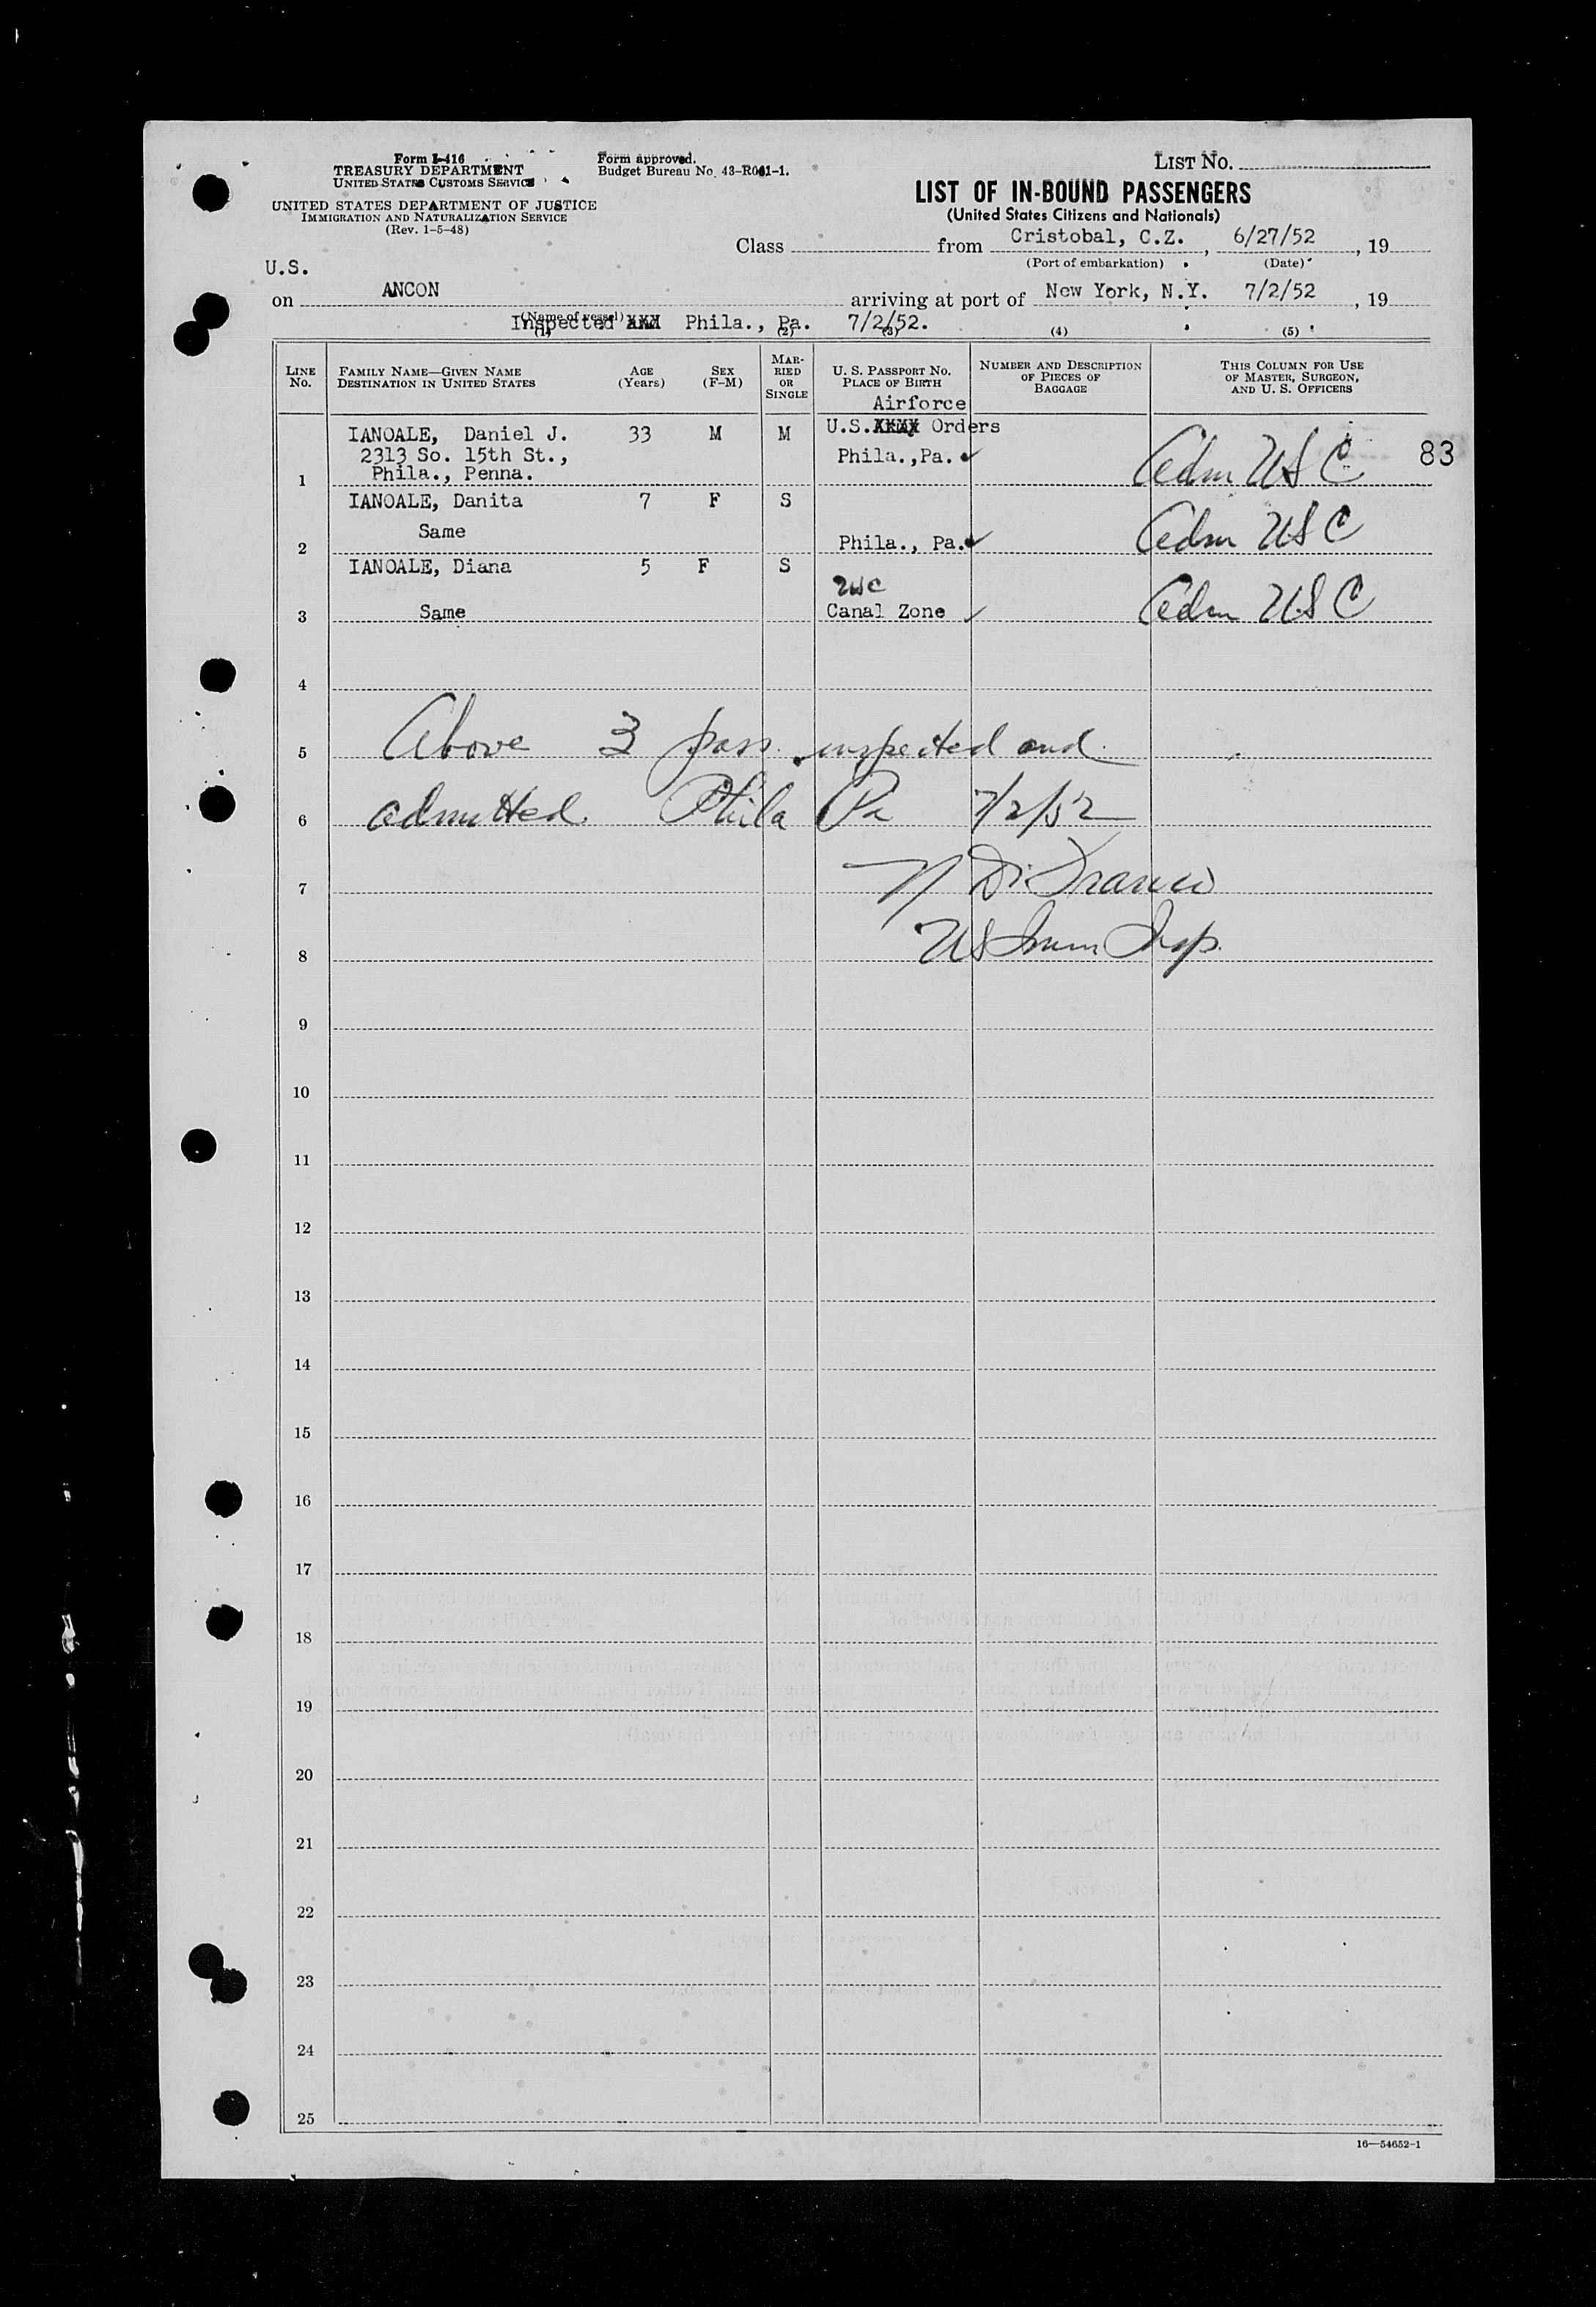 Form I-416
TREASURY DEPARTMENT
UNITED STATES CUSTOMS SERVICE
UNITED STATES DEPARTMENT OF JUSTICE
IMMIGRATION AND NATURALIZATION SERVICE
(Rev. 1-5-48)
Form approved.
Budget Bureau No. 43-R041-1.
LIST NO.
LIST OF IN-BOUND PASSENGERS
(United States Citizens and Nationals)
Class from Cristobal, C.Z. , 6/27/52 , 19
(Port of embarkation) (Date)
U.S.
on ANCON arriving at port of New York, N.Y. 7/2/52 , 19
(Name of vessel)
Inspected XXX Phila., Pa. 7/2/52.
(1) (2) (3) (4) (5)
LINE NO. FAMILY NAME—GIVEN NAME DESTINATION IN UNITED STATES AGE (Years) SEX (F-M) MARRIED OR SINGLE U. S. PASSPORT NO. PLACE OF BIRTH NUMBER AND DESCRIPTION OF PIECES OF BAGGAGE THIS COLUMN FOR USE OF MASTER, SURGEON, AND U. S. OFFICERS
Airforce
IANOALE, Daniel J. 33 M M U.S. XXXX Orders
2313 So. 15th St., Phila.,Pa. Adm USC 83
Phila., Penna.
1
IANOALE, Danita 7 F S
Same Adm USC
2 Phila., Pa.
IANOALE, Diana 5 F S
3 Same Canal Zone Adm USC
4
5 Above 3 pass. inspected and
6 admitted Phila Pa 7/2/52
7 N DiFranco
8 US Imm Insp.
9
10
11
12
13
14
15
16
17
18
19
20
21
22
23
24
25
16—54652-1